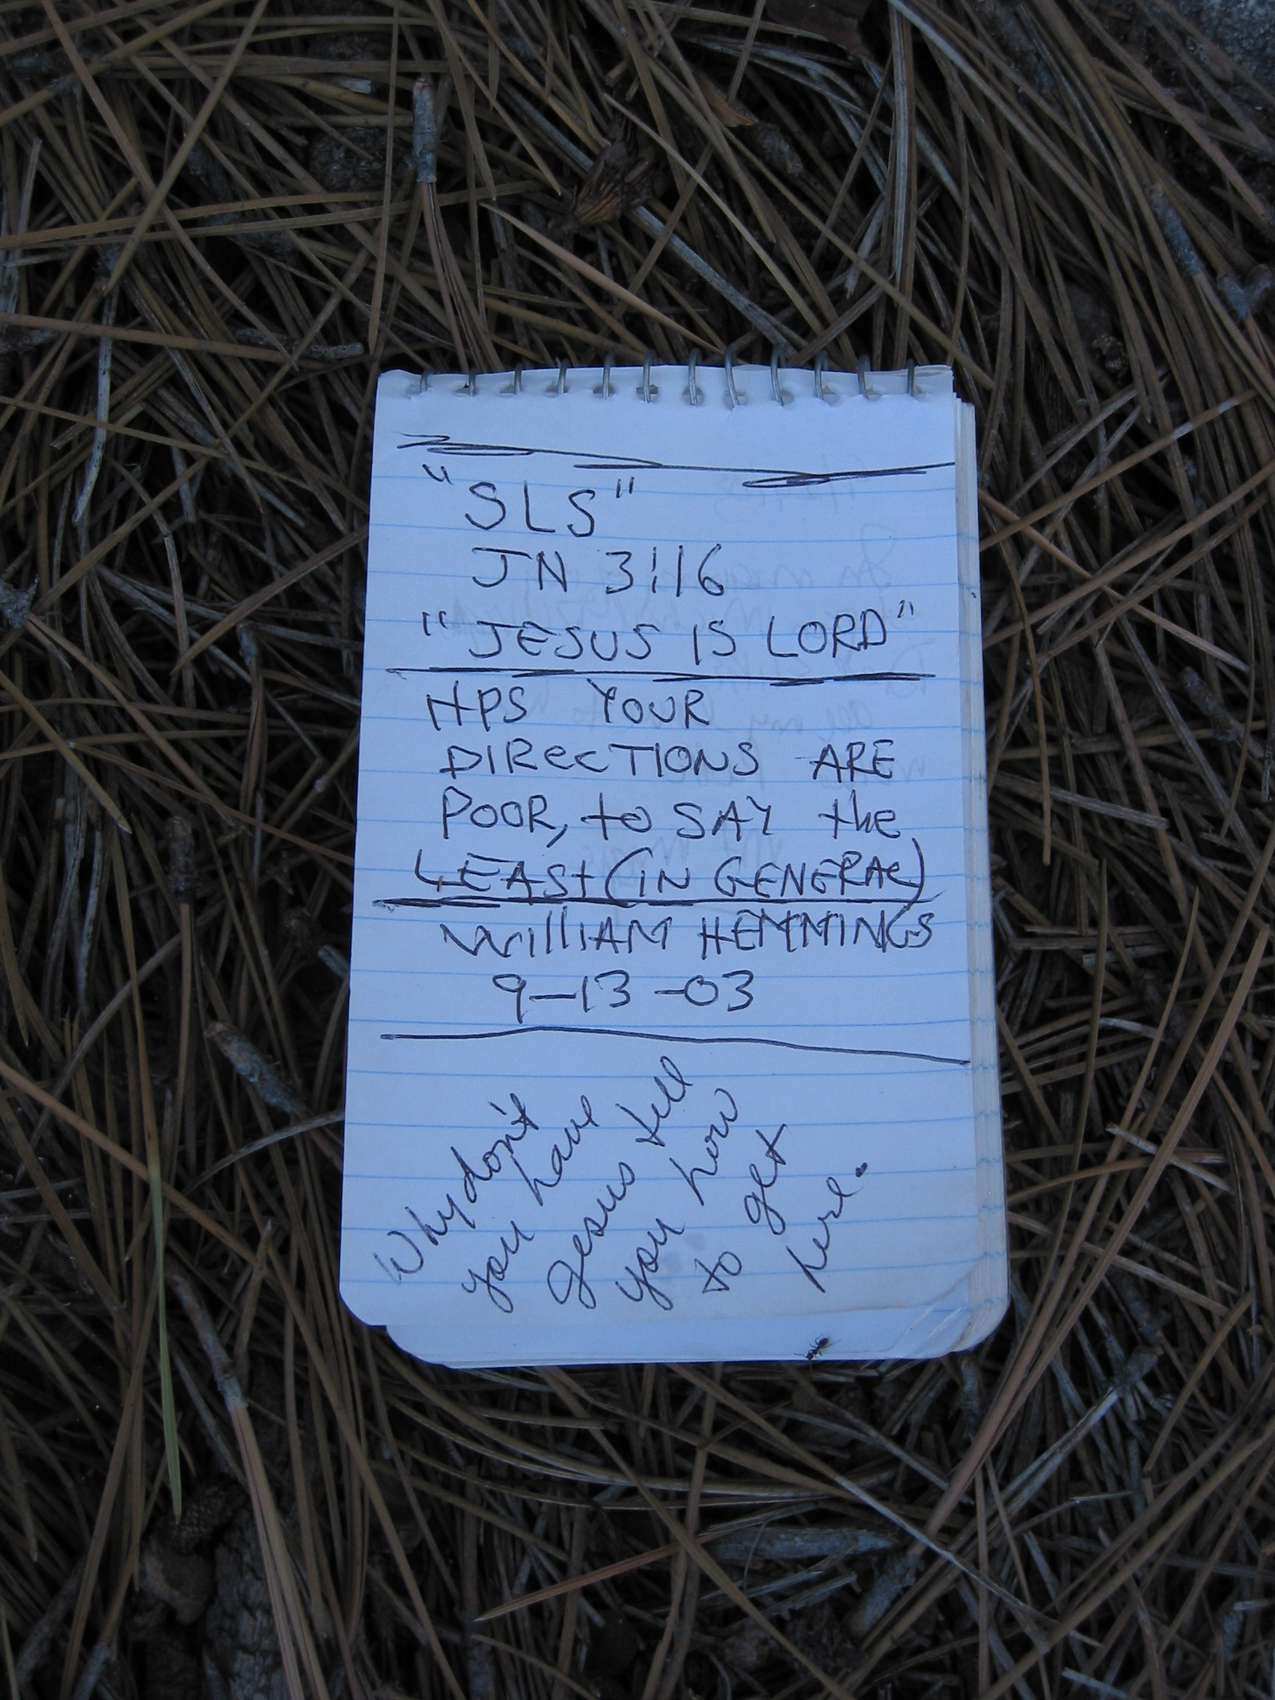 "SLS"
JN 3:16
"JESUS IS LORD"
HPS YOUR
DIRECTIONS ARE
POOR, to SAY the
LEASt (IN GENERAL)
WIllIAM HEMMINGS
9-13-03
Why don't
you have
Jesus tell
you how
to get
here.